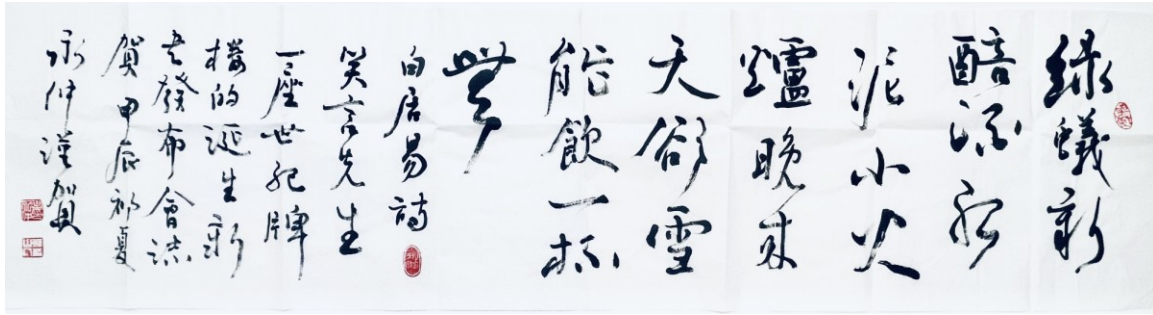 綠蟻新
醅酒紅
泥小火
爐晚來
天欲雪
能飲一杯
無
白居易詩
笑言先生
一座世紀牌
樓的誕生新
書發布會誌
賀 甲辰初夏
永仲謹賀